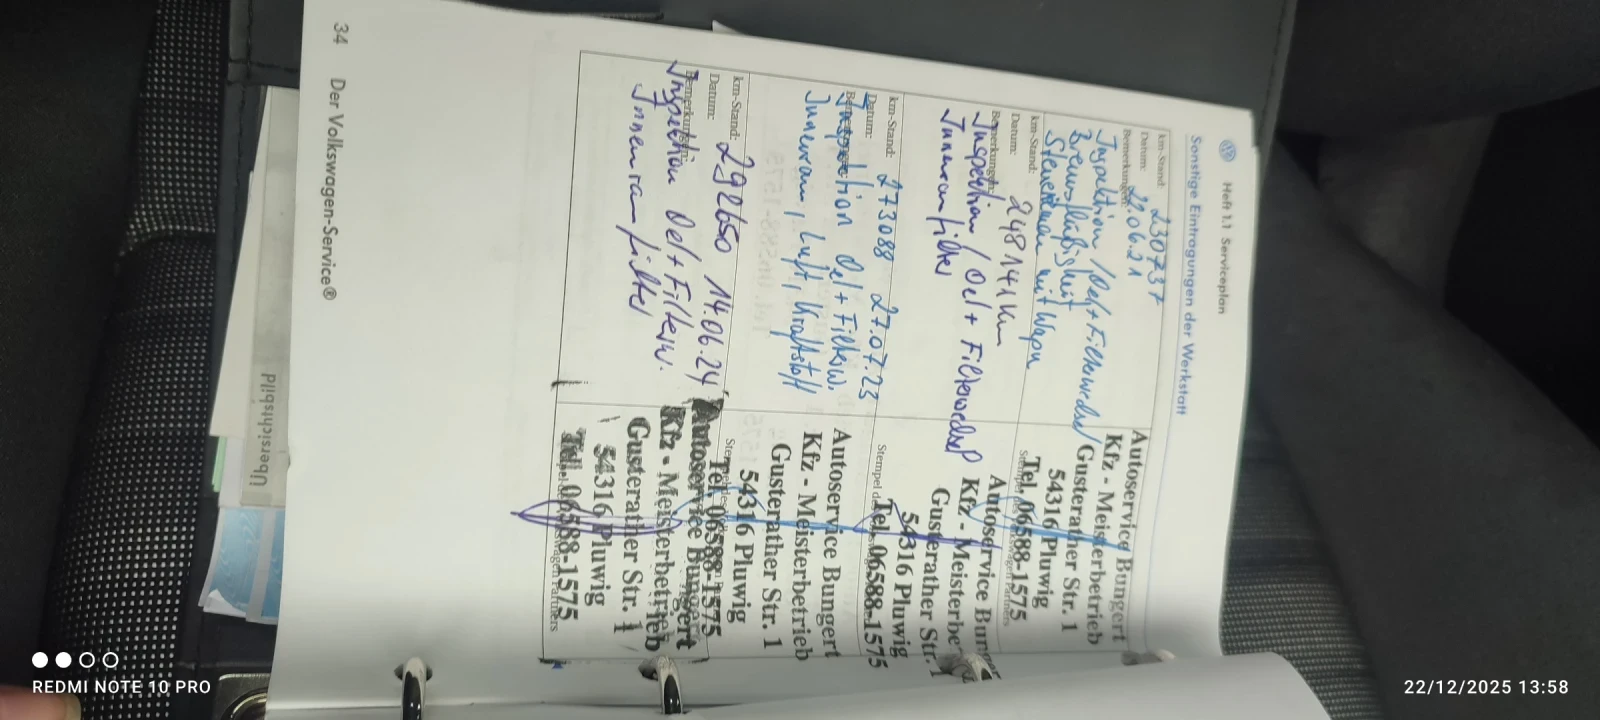 Heft 1.1 Serviceplan
Sonstige Eintragungen der Werkstatt
km-Stand: 230737
Datum: 22.06.21
Bemerkungen:
Inspektion / Oel + Filterwechsel /
Bremsflüßigkeit
Steuerriemen mit Wapu
Autoservice Bungert
Kfz - Meisterbetrieb
Gusterather Str. 1
54316 Pluwig
Tel. 06588-1575
km-Stand: 248141 Km
Datum:
Bemerkungen:
Inspektion / Oel + Filterwechsel
Innenraumfilter
Autoservice Bungert
Kfz - Meisterbe
Gusterather Str. 1
54316 Pluwig
Tel. 06588-1575
km-Stand: 273088 27.07.23
Datum:
Inspektion Oel + Filterw.
Innenraum, Luft, Kraftstoff
Autoservice Bungert
Kfz - Meisterbetrieb
Gusterather Str. 1
54316 Pluwig
Tel. 06588-1575
km-Stand: 292650 14.06.24
Datum:
Bemerkungen:
Inspektion Oel + Filterw.
Innenraumfilter
Autoservice Bungert
Kfz - Meisterbetrieb
Gusterather Str. 1
54316 Pluwig
Tel. 06588-1575
34 Der Volkswagen-Service®
Übersichtsbild
REDMI NOTE 10 PRO
22/12/2025 13:58